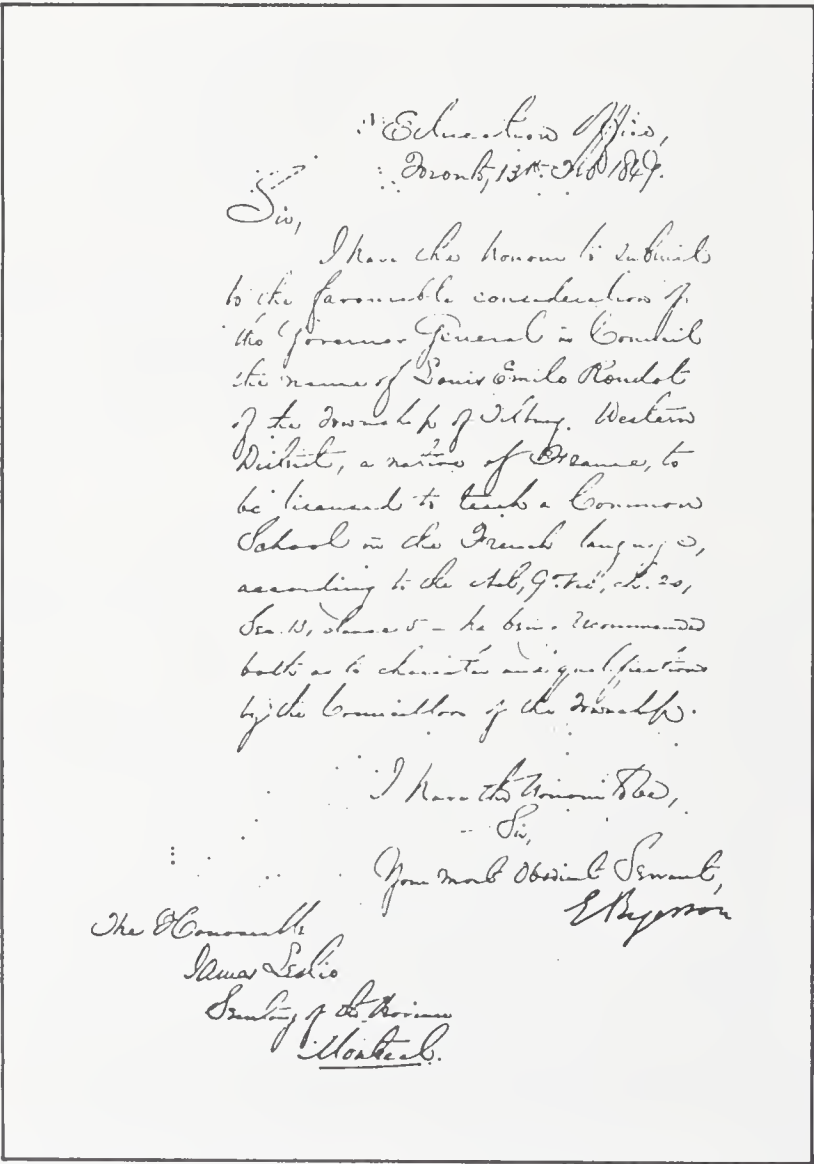 Education Office,
Toronto, 13th Feb 1849.
Sir,
I have the honour to submit
to the favourable consideration of
the Governor General in Council
the name of Louis Emile Rondot
of the Township of Tilbury. Western
District, a native of France, to
be licensed to teach a Common
School in the French language,
according to the Act, 9. Vic, ch. 20,
Sec. 13, clause 5 – he being recommended
both as to character and qualifications
by the Councillors of the Township.
I have the honour to be,
Sir,
Your most Obedient Servant,
E Ryerson
The Honourable
James Leslie
Secretary of the Province
Montreal.